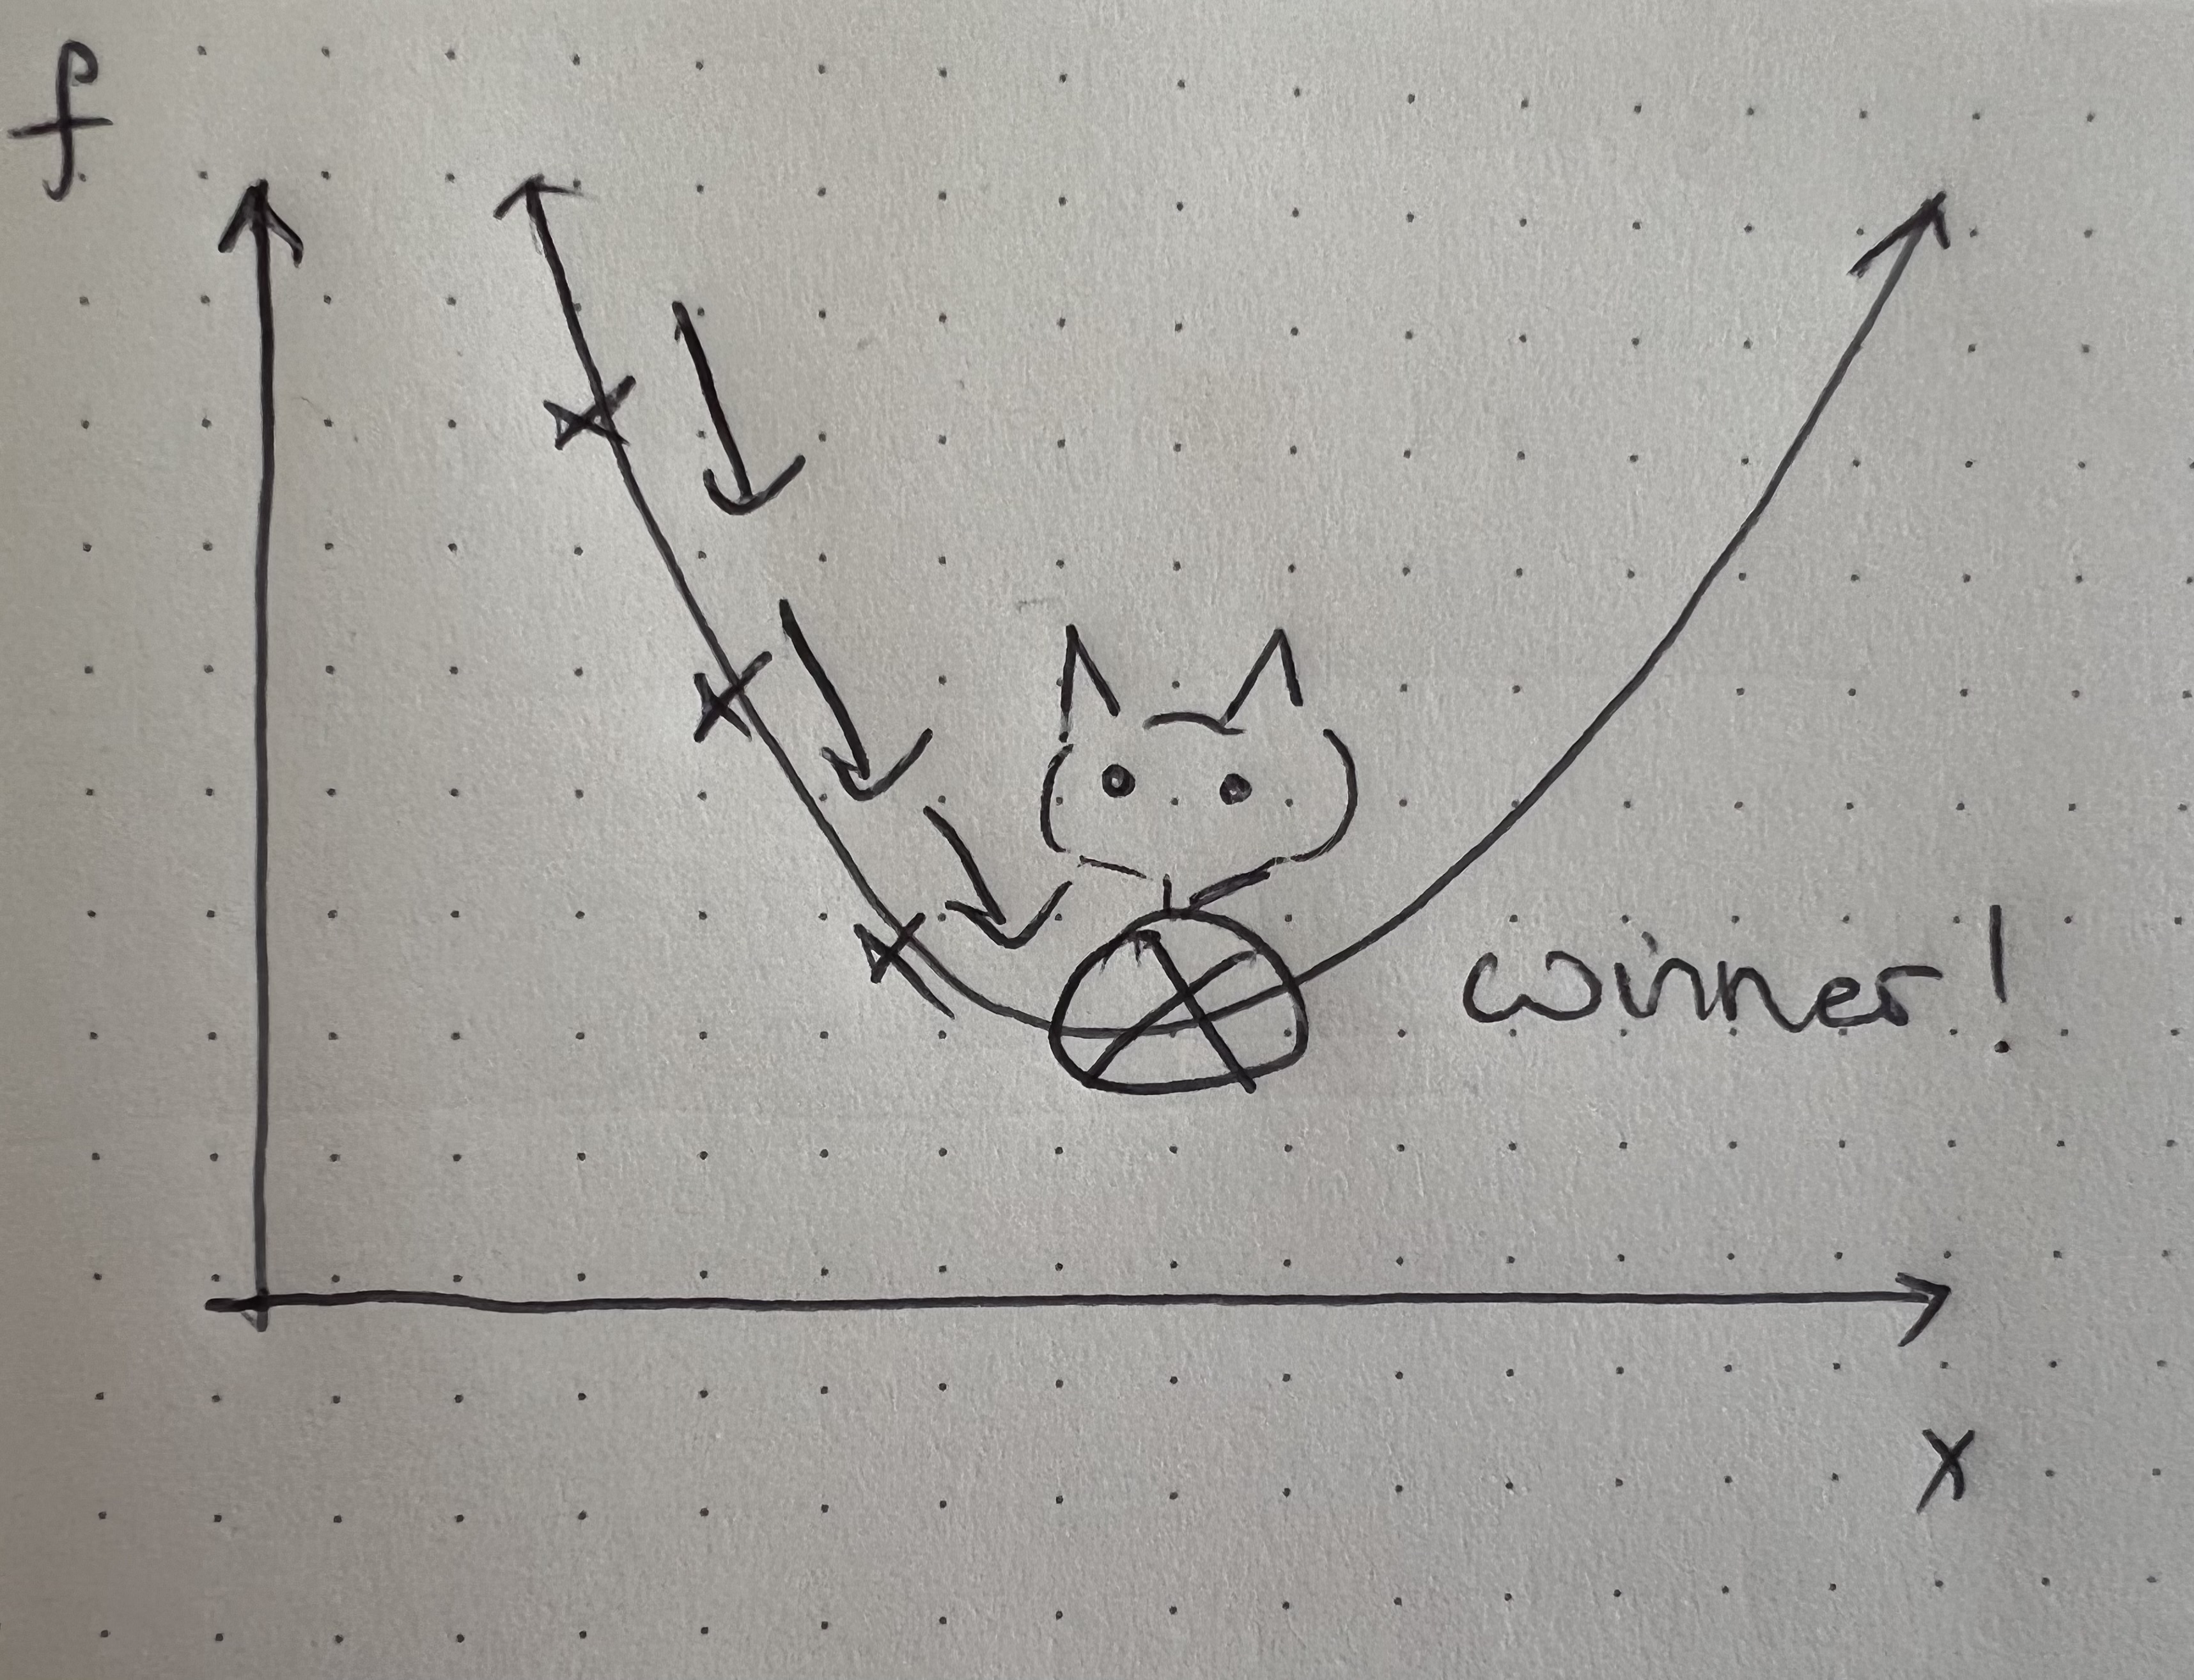 f
winner!
x